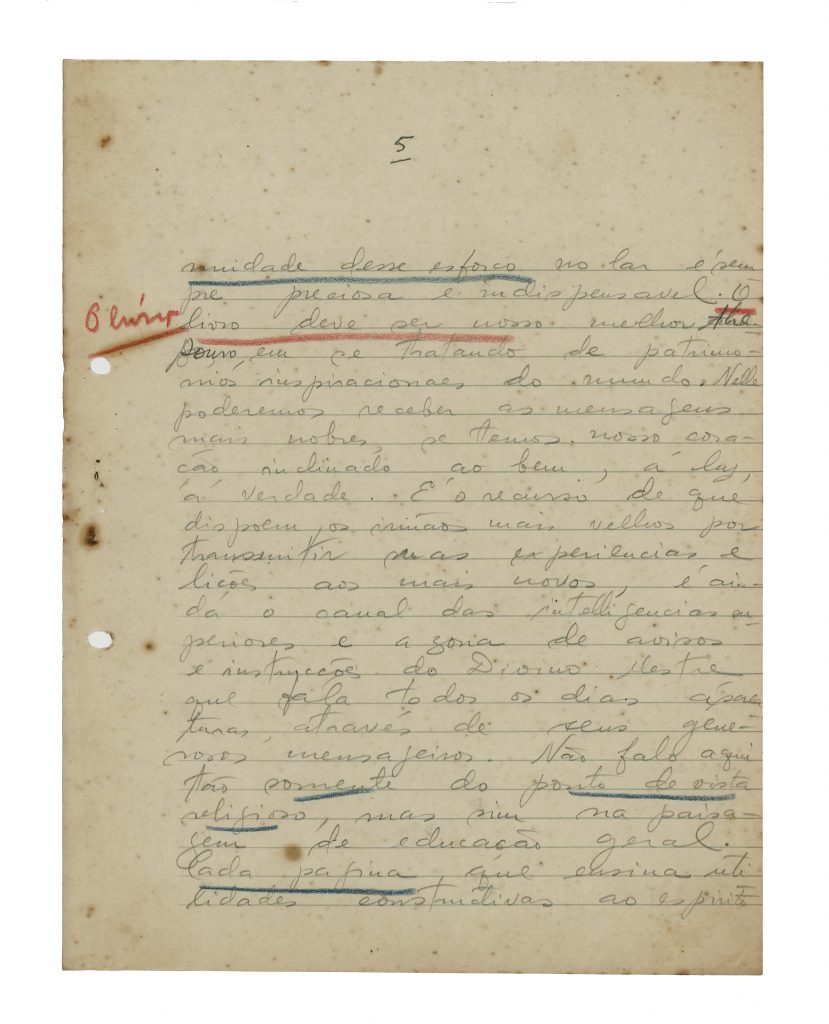 5
nuidade desse esforço no lar é sem
pre preciosa e indispensavel. O
O livro
livro deve ser nosso melhor the-
souro, em se tratando de patrimo-
nios inspiracionaes do mundo. Nelle
poderemos receber as mensagens
mais nobres, se temos, nosso cora-
ção inclinado ao bem, á luz,
á verdade. É o recurso de que
dispoem, os irmãos mais velhos por
transmitir suas experiencias e
lições aos mais novos, é ain-
da o canal das intelligencias su-
periores e a zona de avisos
e instrucções do Divino Mestre
que fala todos os dias ás crea
turas, através de seus gene-
rosos mensageiros. Não falo aqui
tão somente do ponto de vista
religioso, mas sim na paisa-
gem de educação geral.
Cada pagina, que ensina uti
lidades constructivas ao espirito